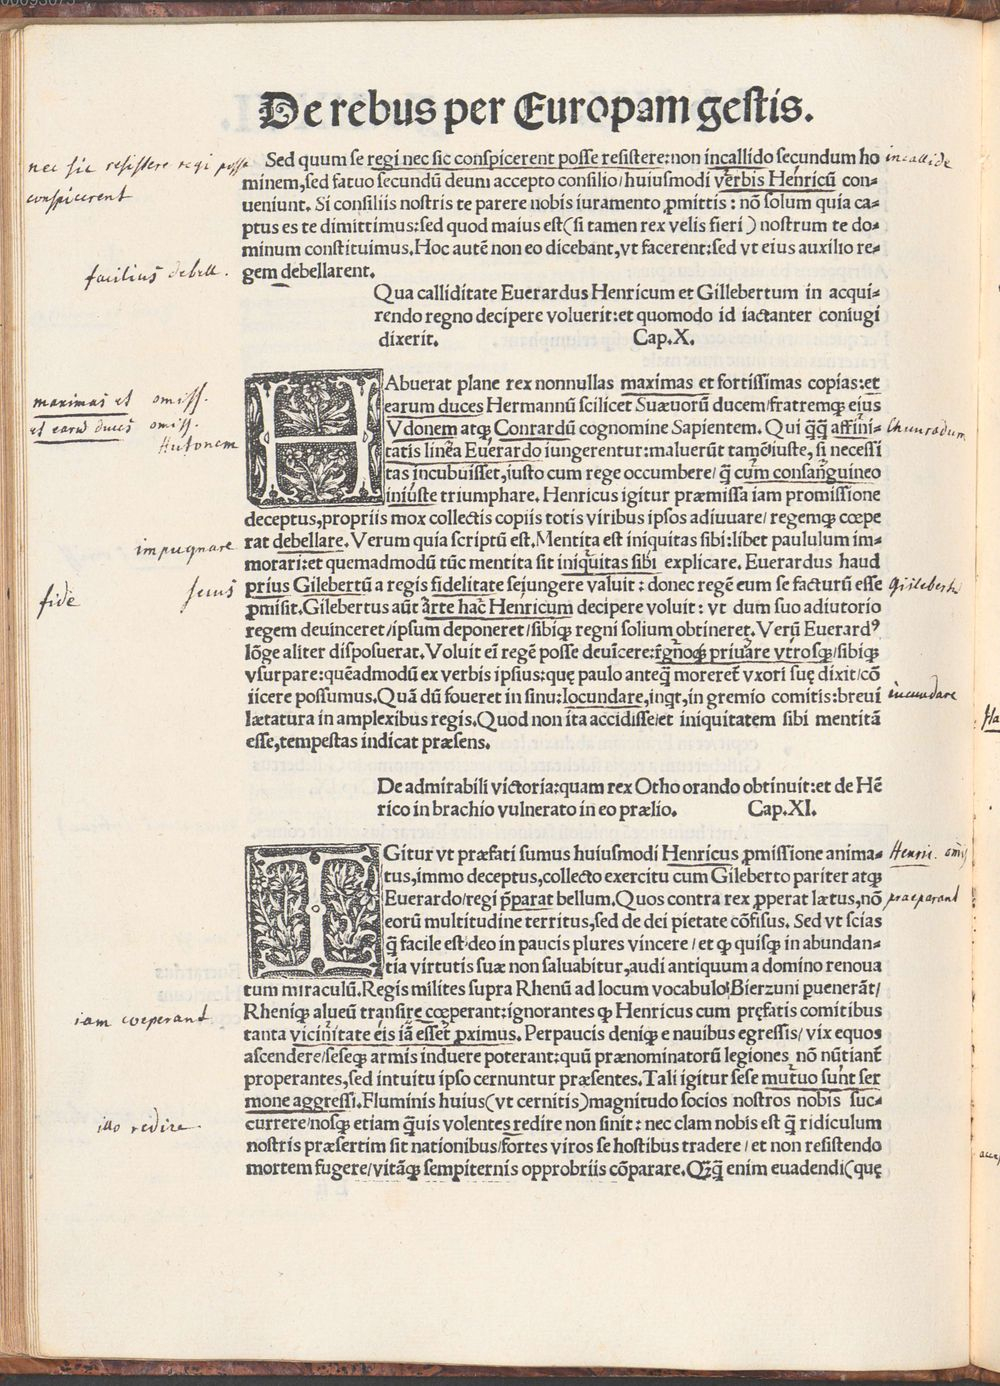 De rebus per Europam gestis.
Sed quum se regi nec sic conspicerent posse resistere:non incallido secundum ho
minem,sed fatuo secundū deum accepto consilio/huiusmodi verbis Henricū con=
ueniunt. Si consiliis nostris te parere nobis iuramento ꝓmittis: nō solum quia ca=
ptus es te dimittimus:sed quod maius est(si tamen rex velis fieri) nostrum te do=
minum constituimus. Hoc autē non eo dicebant,vt facerent:sed vt eius auxilio re=
gem debellarent.
Qua calliditate Euerardus Henricum et Gillebertum in acqui=
rendo regno decipere voluerit:et quomodo id iactanter coniugi
dixerit. Cap.X.
HAbuerat plane rex nonnullas maximas et fortissimas copias:et
earum duces Hermannū scilicet Suæuorū ducem/fratremqꝫ eius
Vdonem atqꝫ Conrardū cognomine Sapientem. Qui q̄q̄ affini=
tatis linea Euerardo iungerentur:maluerūt tamē iuste, si necessi
tas incubuisset,iusto cum rege occumbere/ q̄ cum consanguineo
iniuste triumphare. Henricus igitur præmissa iam promissione
deceptus,propriis mox collectis copiis totis viribus ipsos adiuuare/ regemqꝫ cœpe
rat debellare. Verum quia scriptū est. Mentita est iniquitas sibi:libet paululum im=
morari:et quemadmodū tūc mentita sit iniquitas sibi explicare. Euerardus haud
prius Gilebertū a regis fidelitate seiungere valuit: donec regē eum se facturū esse
ꝓmisit. Gilebertus aūt arte hac Henricum decipere voluit: vt dum suo adiutorio
regem deuinceret/ipsum deponeret/sibiqꝫ regni solium obtineret. Verū Euerardꝰ
lōge aliter disposuerat. Voluit eī regē posse deuīcere:rēgnoqꝫ priuare vtrosqꝫ/sibiqꝫ
vsurpare:quēadmodū ex verbis ipsius:quę paulo anteq̄ moreret̄ vxori suę dixit/cō
iicere possumus. Quā dū foueret in sinu:Iocundare,inqt,in gremio comitis:breui
lætatura in amplexibus regis. Quod non ita accidisse/et iniquitatem sibi mentitā
esse,tempestas indicat præsens.
De admirabili victoria:quam rex Otho orando obtinuit:et de Hē
rico in brachio vulnerato in eo prælio. Cap.XI.
IGitur vt præfati sumus huiusmodi Henricus ꝓmissione anima=
tus,immo deceptus,collecto exercitu cum Gileberto pariter atqꝫ
Euerardo/regi p̄parat bellum. Quos contra rex ꝓperat lætus,nō
eorū multitudine territus,sed de dei pietate cōfisus. Sed vt scias
q̄ facile est deo in paucis plures vincere/et ꝙ quisqꝫ in abundan=
tia virtutis suæ non saluabitur,audi antiquum a domino renoua
tum miraculū. Regis milites supra Rhenū ad locum vocabulo Bierzuni ꝑuenerāt/
Rheniqꝫ alueū transire cœperant:ignorantes ꝙ Henricus cum pręfatis comitibus
tanta vicinitate eis iā esset ꝓximus. Perpaucis deniqꝫ e nauibus egressis/ vix equos
ascendere/seseqꝫ armis induere poterant:quū prænominatorū legiones nō nūtiant̄
properantes,sed intuitu ipso cernuntur præsentes. Tali igitur sese mutuo sunt ser
mone aggressi. Fluminis huius(vt cernitis)magnitudo socios nostros nobis suc=
currere/nosqꝫ etiam q̄uis volentes redire non sinit: nec clam nobis est q̄ ridiculum
nostris præsertim sit nationibus/fortes viros se hostibus tradere/ et non resistendo
mortem fugere/vitāqꝫ sempiternis opprobriis cōparare. Qꝫq̄ enim euadendi(quę
nec sic resistere regi posse
conspicerent
facilius debell.
maximas et omiss.
et earū duces omiss.
Hutonem
impugnare
secus
fide
iam coeperant
illo redire
incallide
Chuonradum
Gisleberth
iucundare
Henri. omiss
praeparant